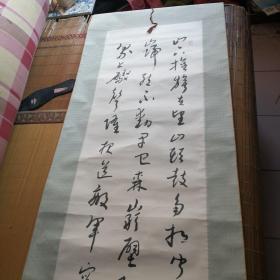 山下旌旗在望山头鼓角相闻
岿然不动早已森严壁
界上炮声隆报道敌军宵